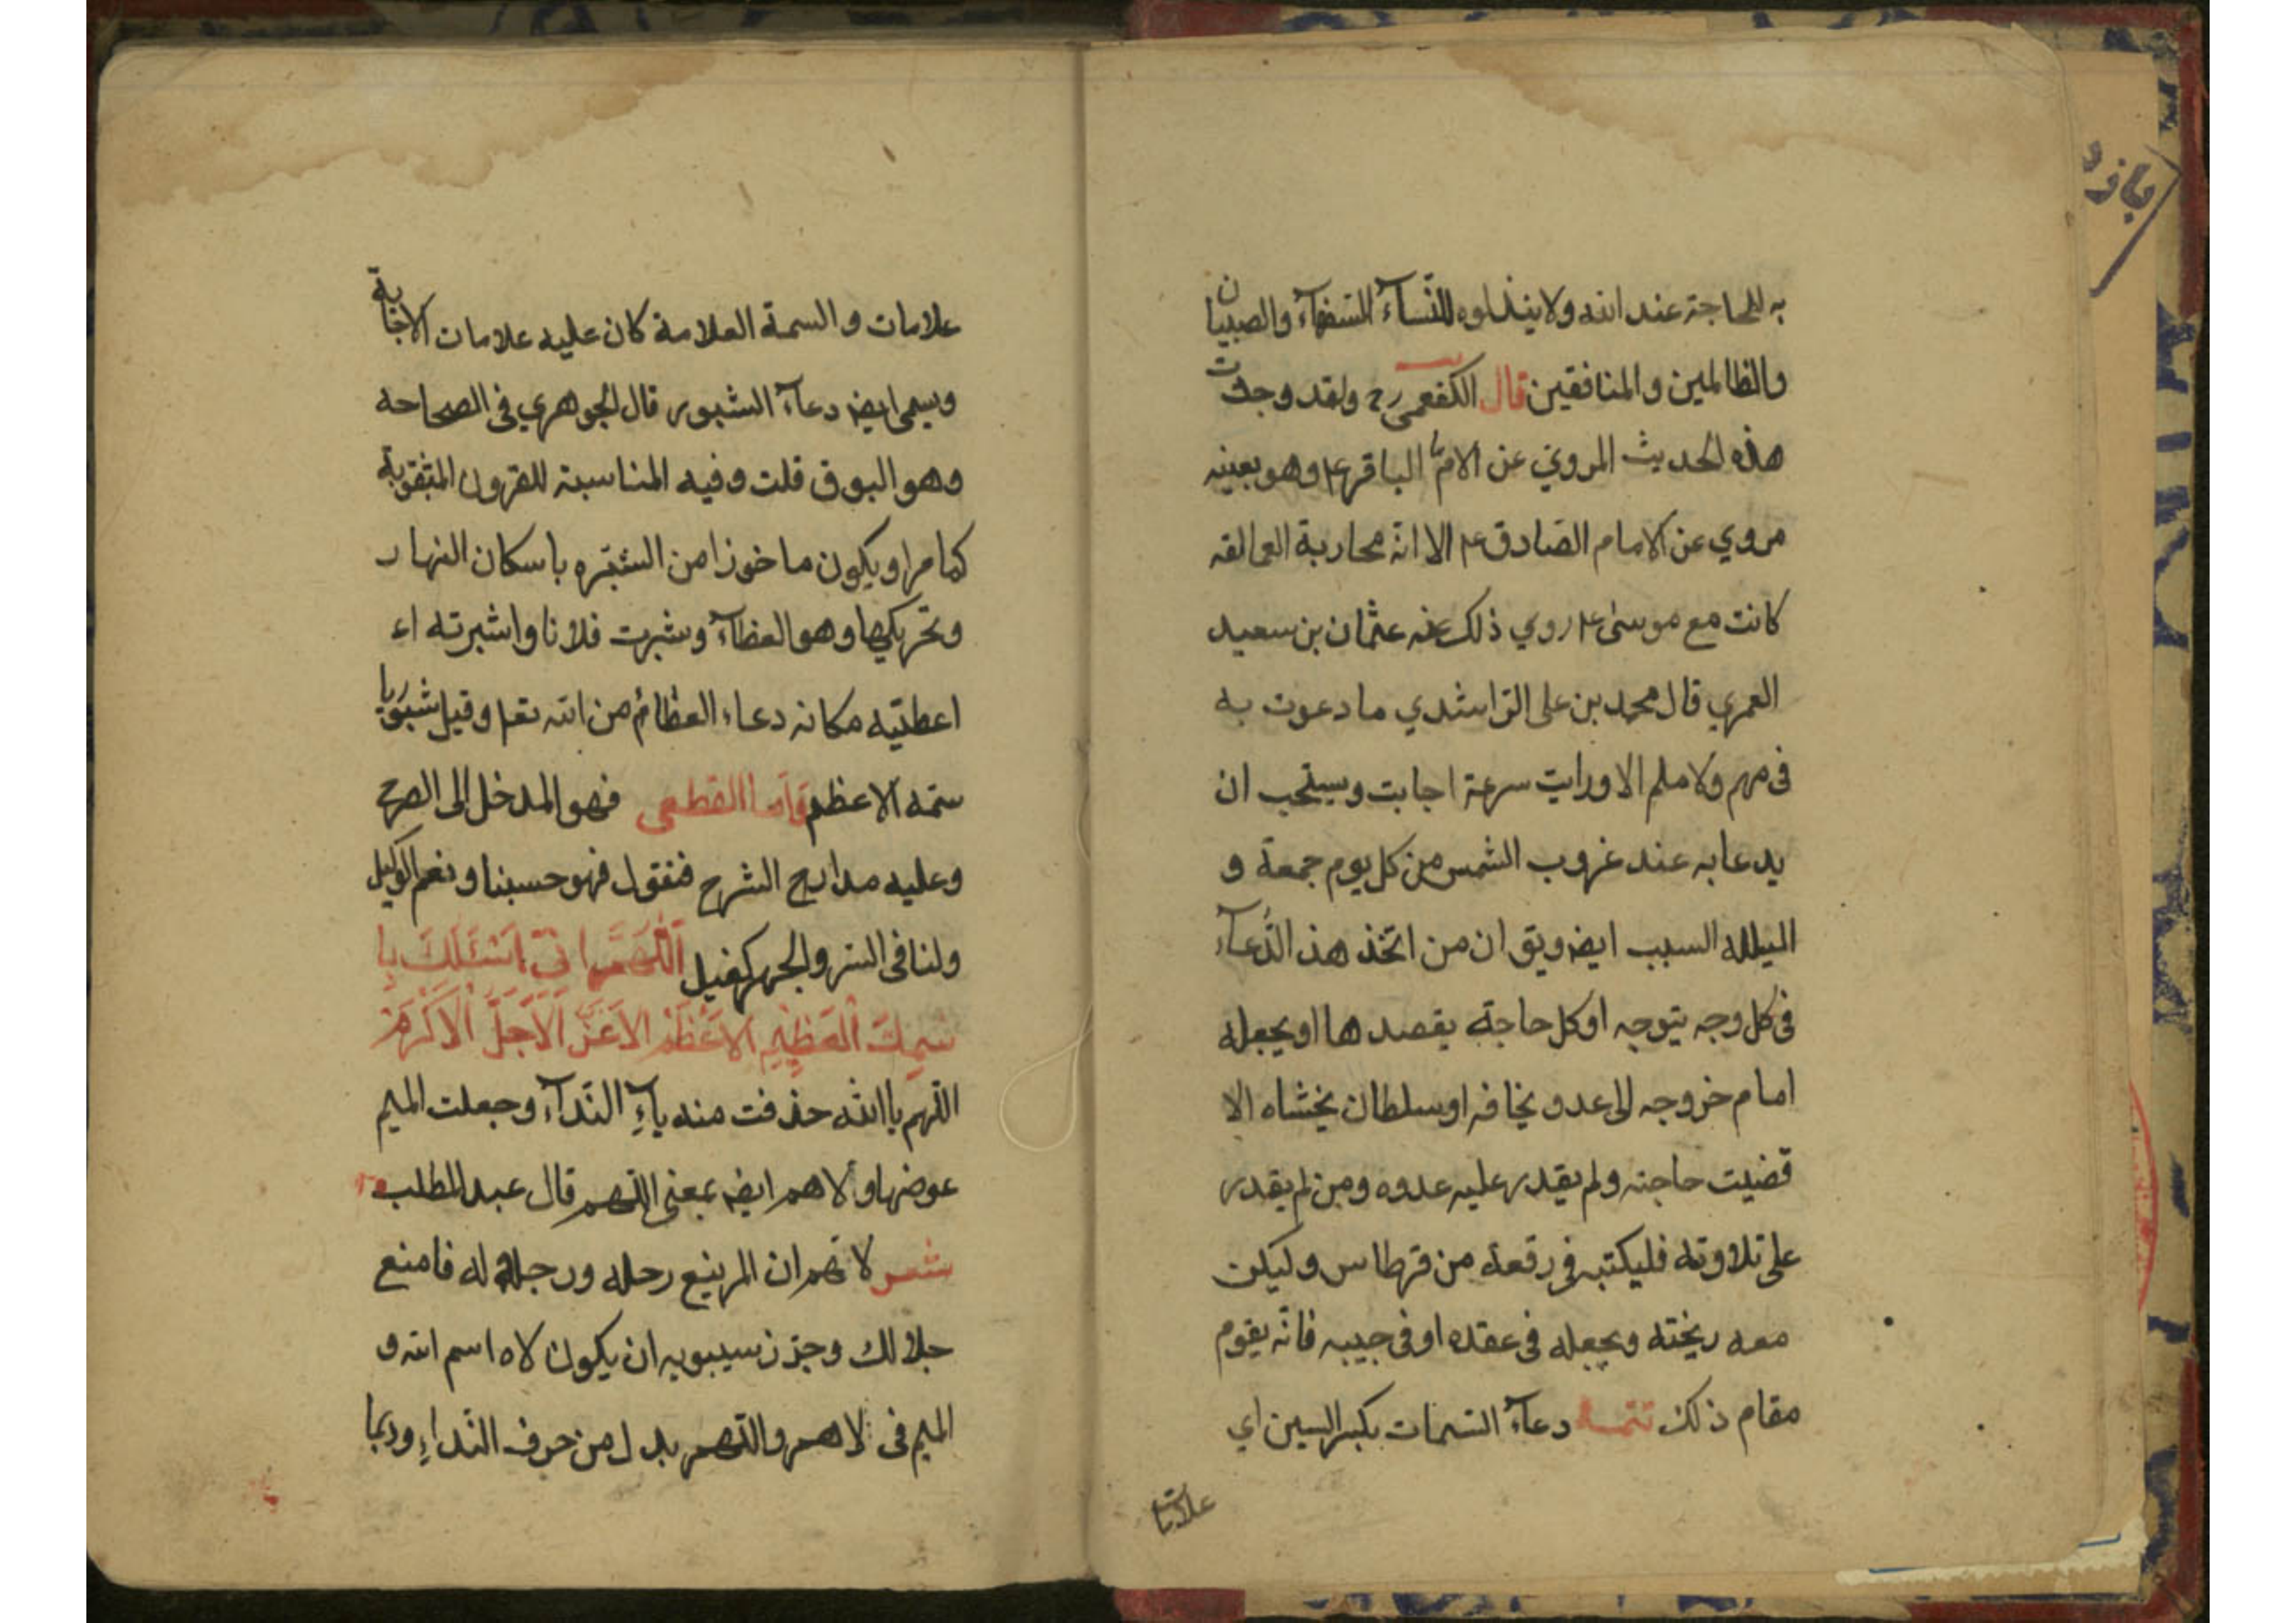 به للحاجة عند الله ولا يبذلوه للنسآء السفهآء والصبيان
والظالمين والمنافقين قال الكفعمي رح ولقد وجدت
هذه الحديث المروي عن الامام الباقر ع وهو بعينه
مروي عن الامام الصادق ع الا انه محاربة العمالقه
كانت مع موسى ع روي ذلك عنه عثمان بن سعيد
العمري قال محمد بن على الراشدي ما دعوت به
فى مهم ولا ملم الا ورايت سرعة اجابت ويستحب ان
يدعا به عند غروب الشمس من كل يوم جمعة و
الليلله السبب ايضا ويق ان من اتخذ هذ الدُعآء
فى كل وجه يتوجه او كل حاجة يقصدها او يجعله
امام خروجه الى عدو يخافه او سلطان يخشاه الا
قضيت حاجته ولم يقدر عليه عدوه ومن لم يقدر
على تلاوته فليكتبه فى رقعة من قرطاس وليكن
معه ويجعله فى عقده او فى جيبه فانه يقوم
مقام ذلك تتمه دعآء السمات بكسر السين اي
علامات
علامات و السمة العلامة كان عليه علامات الاجابة
ويسمى ايضا دعآء الشبور قال الجوهري فى الصحاحه
وهو البوق قلت وفيه المناسبة للقرون المثقوبة
كما مر او يكون ماخوزا من الشبره باسكان النهار
وتحريكها وهو العطآء وشبرت فلانا واشبرته اء
اعطيته مكانه دعاء العظائم من الله تعا وقيل شبوريا
سمه الاعظم واما القطعى فهو المدخل الى الصرح
وعليه مدارج الشرح فنقول فهو حسبنا ونعم الوكيل
ولنا فى السر والجهر كفيل اَللّهُمَّ اِنّى اَسْئَلُكَ بِا
سْمِكَ الْعَظِيْمِ الاَعْظَمْ الاَعَزّ الاَجَلّ الاَكْرَمْ
اللهم يا الله حذفت منه ياءِ النّدآء وجعلت الميم
عوضها ولاهم ايضا بمعنى اللهم قال عبد المطلب
شعر لاهم ان المر يمنع رحله ورحله له فامنع
حلالك وجوز سيبويه ان يكون لاه اسم الله و
الميم فى لاهم واللهم بدل من حرف النّداءِ وربما